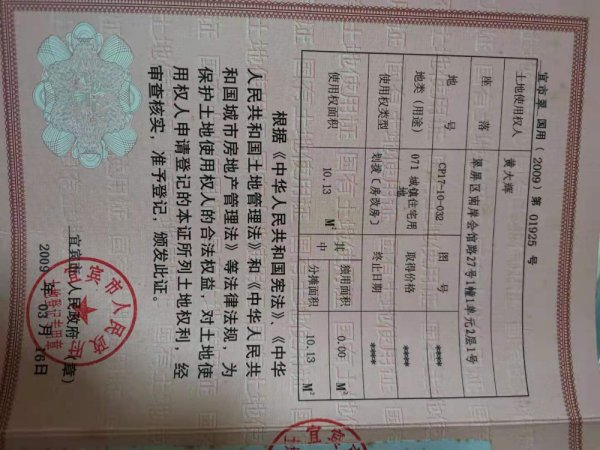 宜市翠 国用( 2009)第 01925 号
土地使用权人 黄大辉
座 落 翠屏区南岸会馆路27号1幢1单元2层1号
地 号 CP17-10-032 图 号
地类(用途) 071 城镇住宅用地 取得价格 ****
使用权类型 划拨(房改房) 终止日期 ****
使用权面积 10.13 M² 其中 独用面积 0.00 M²
分摊面积 10.13 M²
根据《中华人民共和国宪法》、《中华
人民共和国土地管理法》和《中华人民共
和国城市房地产管理法》等法律法规,为
保护土地使用权人的合法权益,对土地使
用权人申请登记的本证所列土地权利,经
审查核实,准予登记,颁发此证。
宜宾市人民政府(章)
2009 年 03 月 16 日